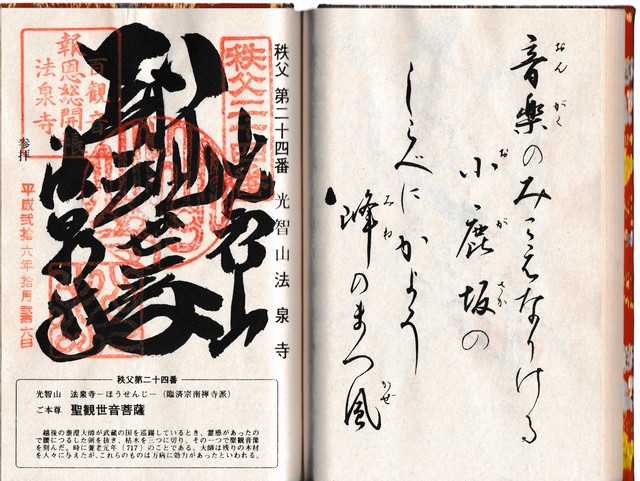 音楽のみこゑなりける
おんがく
小鹿坂の
おがさか
しらべにかよう
峰のまつ風
みね
かぜ
秩父二十四番
秩父 第二十四番 光智山法泉寺
光智山
法泉寺
報恩総開帳
法泉寺
参拝
秩父第二十四番
光智山 法泉寺─ほうせんじ─(臨済宗南禅寺派)
ご本尊 聖観世音菩薩
越後の泰澄大師が武蔵の国を巡錫しているとき、霊感があったの
で腰につるした剣を抜き、枯木を三つに切り、その一つで聖観音像
を刻んだ。時に養老元年(717)のことである。大師は残りの木材
を人々に与えたが、これらのものは万病に効力があったといわれる。